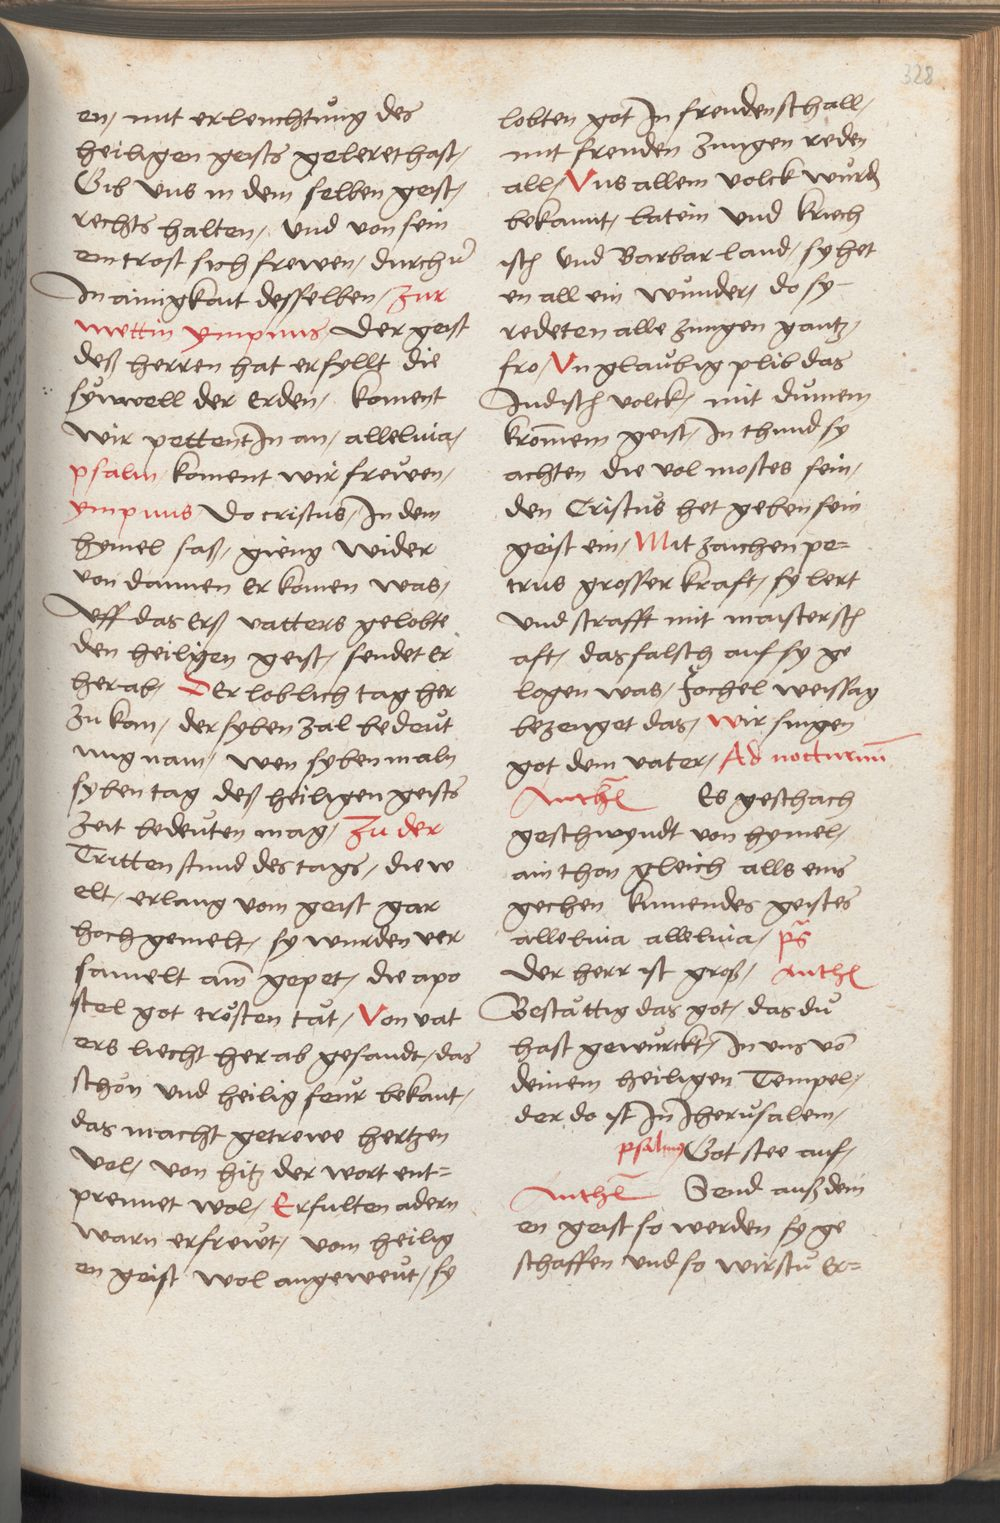 328
en, mit erleuchtung des
heiligen geists geleret hast,
Gib vns in dem selben geist,
rechts halten, vnd von sein
em trost sich frewen, durch
In ainigkait desselben, Zur
mettin ympnus, Der geist
deß herren hat erfyllt die
synwell der erden, koment
wir pettent In an, alleluia,
psalm koment wir frewen,
ympnus Do cristus, In dem
hymel saß, gieng wider
von dannen er komen was,
Uff das erß vatters gelobte
den heiligen geist, sendet er
herab, Der loblich tag her
zu kam, der syben zal bedeut
ung nam, wen syben maln
syben tag deß heiligen geists
zeit bedeuten mag, Zu der
Tritten stund des tags, die w
elt, erlang vom geist gar
hoch gemelt, sy wurden ver
samelt am gepet, die apo
stel got trösten tät, Von vat
ers liecht herab gesandt, das
schön vnd heilig feur bekant,
das macht getrewe hertzen
vol, von hitz der wort ent=
prennet wol, Erfulten adern
warn erfrewt, vom heilig
en geist wol angeweut, sy
lobten got In freuden schall,
mit freuden zungen reden
all, Vns allem volck wurd
bekannt, latein vnd kriech
isch vnd Barbar land, sy het
en all ein wunder, do sy
redeten alle zungen gantz,
fro, Vnglaubig plib das
Judisch volck, mit dumem
krommem geist, In thund sy
achten die vol mostes sein,
den Cristus het geben sein
geist ein, Mit zaichen pe=
trus grosser kraft, sy lert
vnd strafft mit maistersch
aft, das falsch auf sy ge
logen was, Johel weissag
bezeuget das, wir singen
got dem vater, Ad nocturnum
Anth Es geschach
geschwyndt von hymel,
ain thon gleich alls eins
gechen kumendes geistes
alleluia alleluia, ps
Der herr ist groß, Anth
Bestättig das got, das du
hast gewurckt, In vns vo
deinem heiligen Tempel,
der do ist In Jherusalem,
psalm Got stee auf,
Anth Send auß dein
en geist so werden sy ge
schaffen vnd so wirstu er=